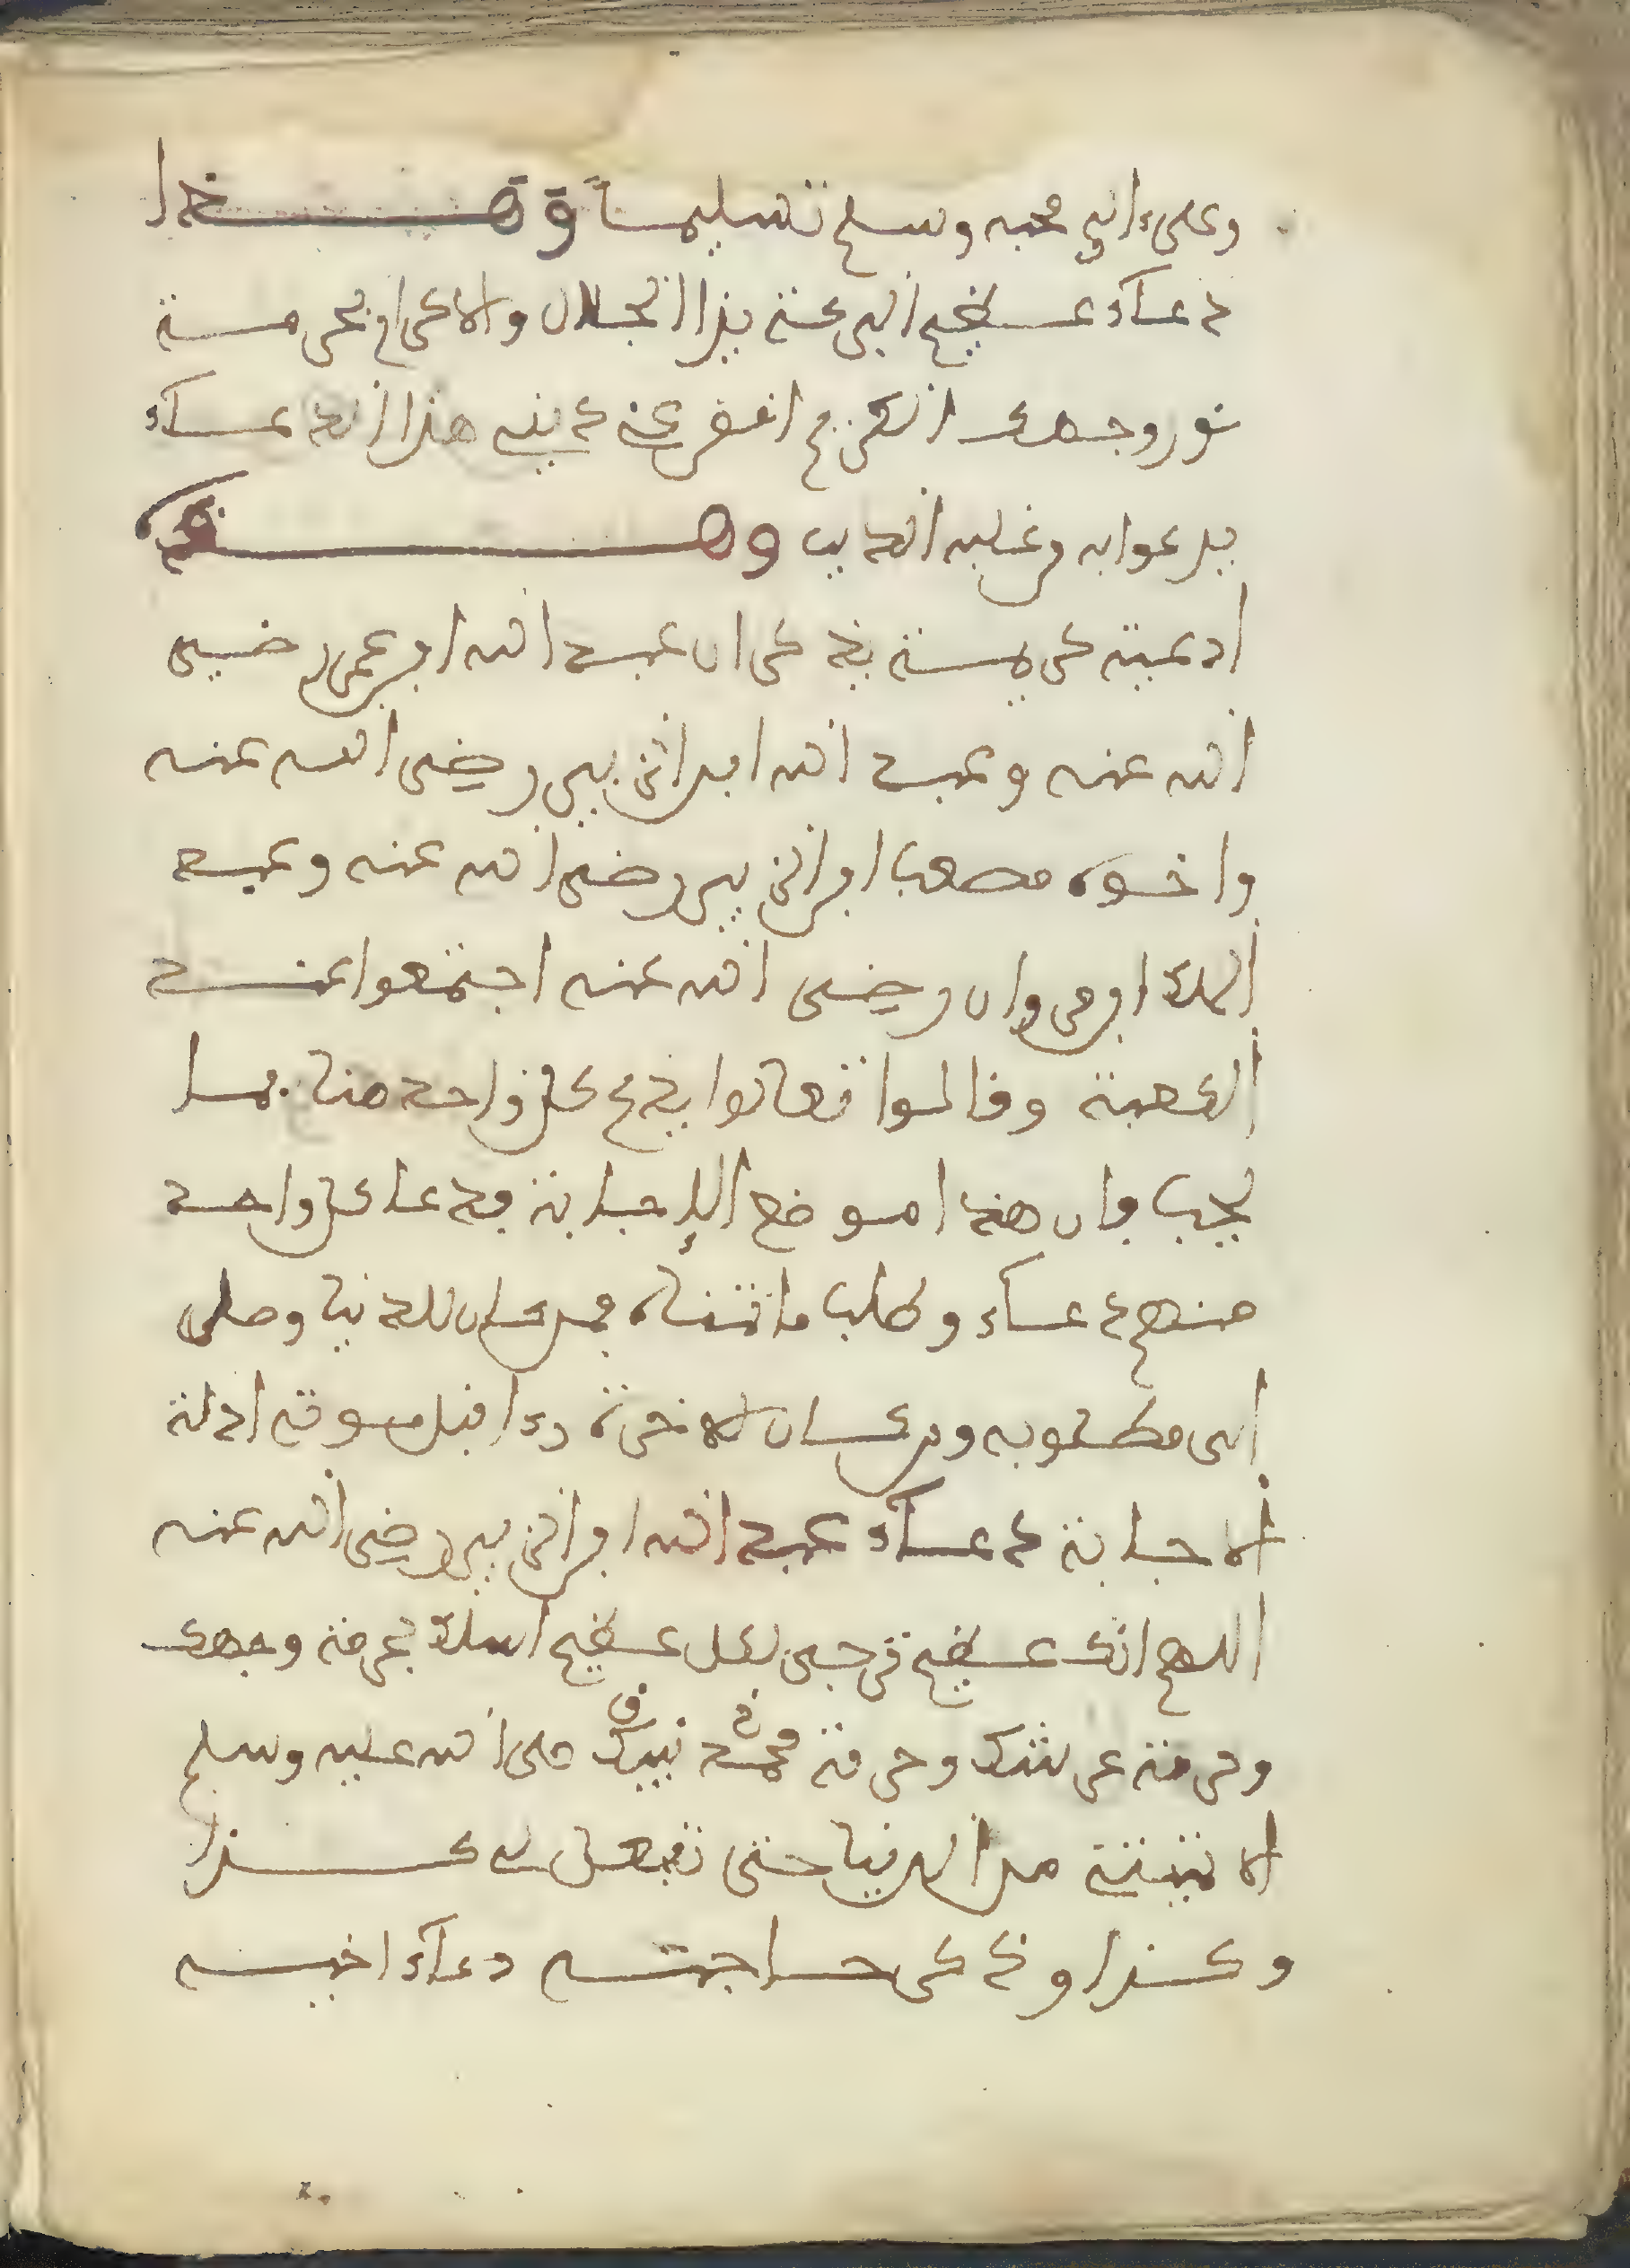 وعلى ءاله وصحبه وسلم تسليماً وهذا
دعآء عظيم البركة يذا الجلال والاكرام بحرمة
نور وجهك الكريم اغفر عني دينه هذا الدعآء
يدعوا به من غلبه الدين وهذه
ادعية كريمة يذكر ان عبد الله ابن عمر رضي
الله عنه وعبد الله ابن الزبير رضي الله عنه
واخوه مصعب ابن الزبير رضي الله عنه وعبد
الملك ابن مروان رضي الله عنه اجتمعوا عند
الكعبة وقالوا تعالوا يدع كل واحد منا بما
يحب فان هذا موضع الإجابة فدعا كل واحد
منهم دعآء وطلب ما تمناه فمن كان للدنيا وصل
الى مطلوبه ومن كان للاخرة رءا قبل موته ادلة
الاجابة دعآء عبد الله ابن الزبير رضي الله عنه
اللهم انك عظيم ترجى لكل عظيم اسلك بحرمة وجهك
وحرمة عرشك وحرمة محمد نبيك صلى الله عليه وسلم
الا تميتني من الدنيا حتى تفعل لي كذا
وكذا وذكر حاجته دعآء اخيه